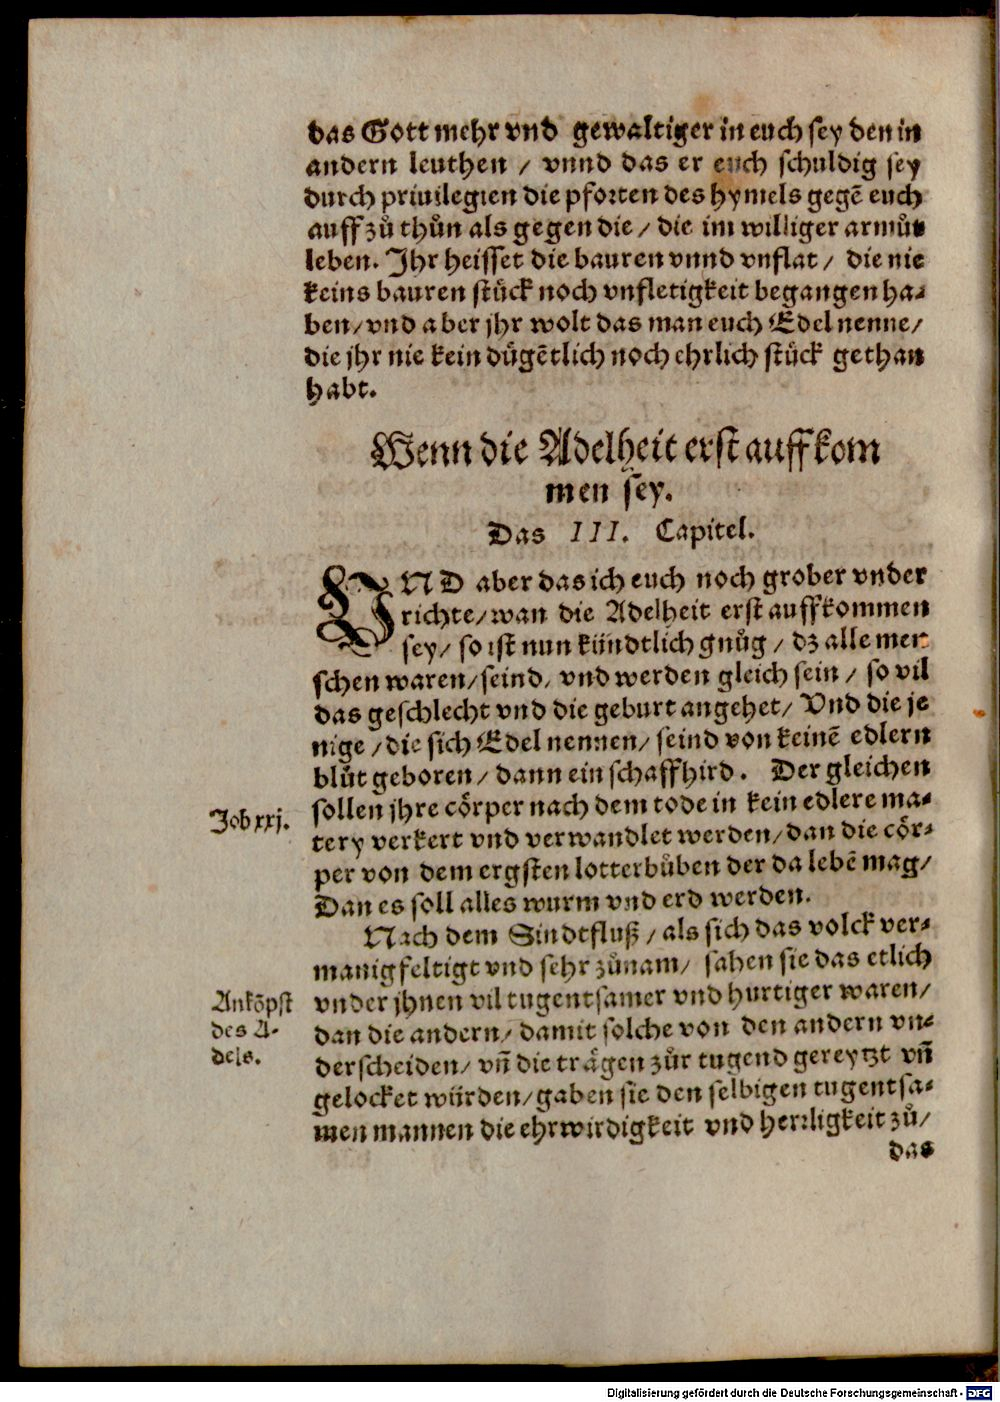 das Gott mehr vnd gewaltiger in euch sey den in
andern leuthen / vnnd das er euch schuldig sey
durch priuilegien die pforten des hymels gegē euch
auff zů thůn als gegen die / die im williger armůt
leben. Ihr heisset die bauren vnnd vnflat / die nie
keins bauren stück noch vnfletigkeit begangen ha⸗
ben / vnd aber jhr wolt das man euch Edel nenne /
die jhr nie kein dügētlich noch ehrlich stück gethan
habt.
Wenn die Adelheit erst auffkom
men sey.
Das III. Capitel.
VND aber das ich euch noch grober vnder
richte / wan die Adelheit erst auffkommen
sey / so ist nun kündtlich gnůg / dz alle men
schen waren / seind, vnd werden gleich sein / so vil
das geschlecht vnd die geburt angehet / Vnd die je
nige / die sich Edel nennen / seind von keinē edlern
blůt geboren / dann ein schaffhird. Der gleichen
Job xxj.
sollen jhre cörper nach dem tode in kein edlere ma⸗
tery verkert vnd verwandlet werden / dan die cör⸗
per von dem ergsten lotterbůben der da lebē mag /
Dan es soll alles wurm vnd erd werden.
Nach dem Sindtfluß / als sich das volck ver⸗
manigfeltigt vnd sehr zůnam / sahen sie das etlich
Ankōpst
des A⸗
dels.
vnder jhnen vil tugentsamer vnd hurtiger waren /
dan die andern / damit solche von den andern vn⸗
derscheiden / vñ die trägen zůr tugend gereytzt vñ
gelocket würden / gaben sie den selbigen tugentsa⸗
men mannen die ehrwirdigkeit vnd herrligkeit zů /
das
Digitalisierung gefördert durch die Deutsche Forschungsgemeinschaft - DFG